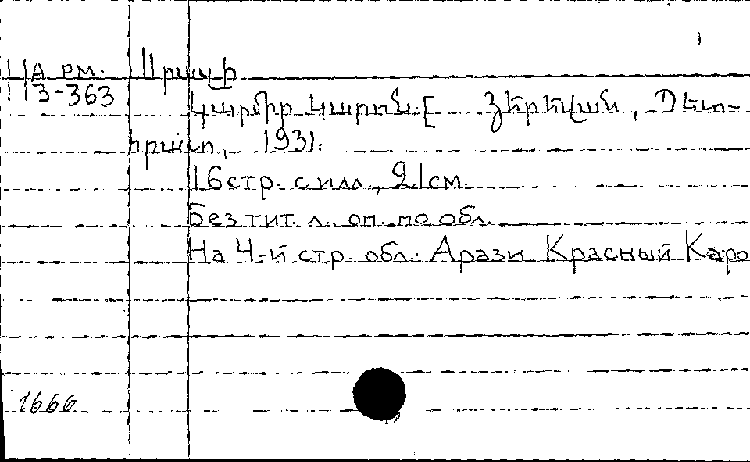 Арм. Արազի
13-363
Կարմիր Կարոն. [Յերեվան, Պետ-
հրատ, 1931.
16стр. с илл., 21см.
Без тит. л. оп. по обл.
На 4-й стр. обл.: Арази. Красный Каро
1666